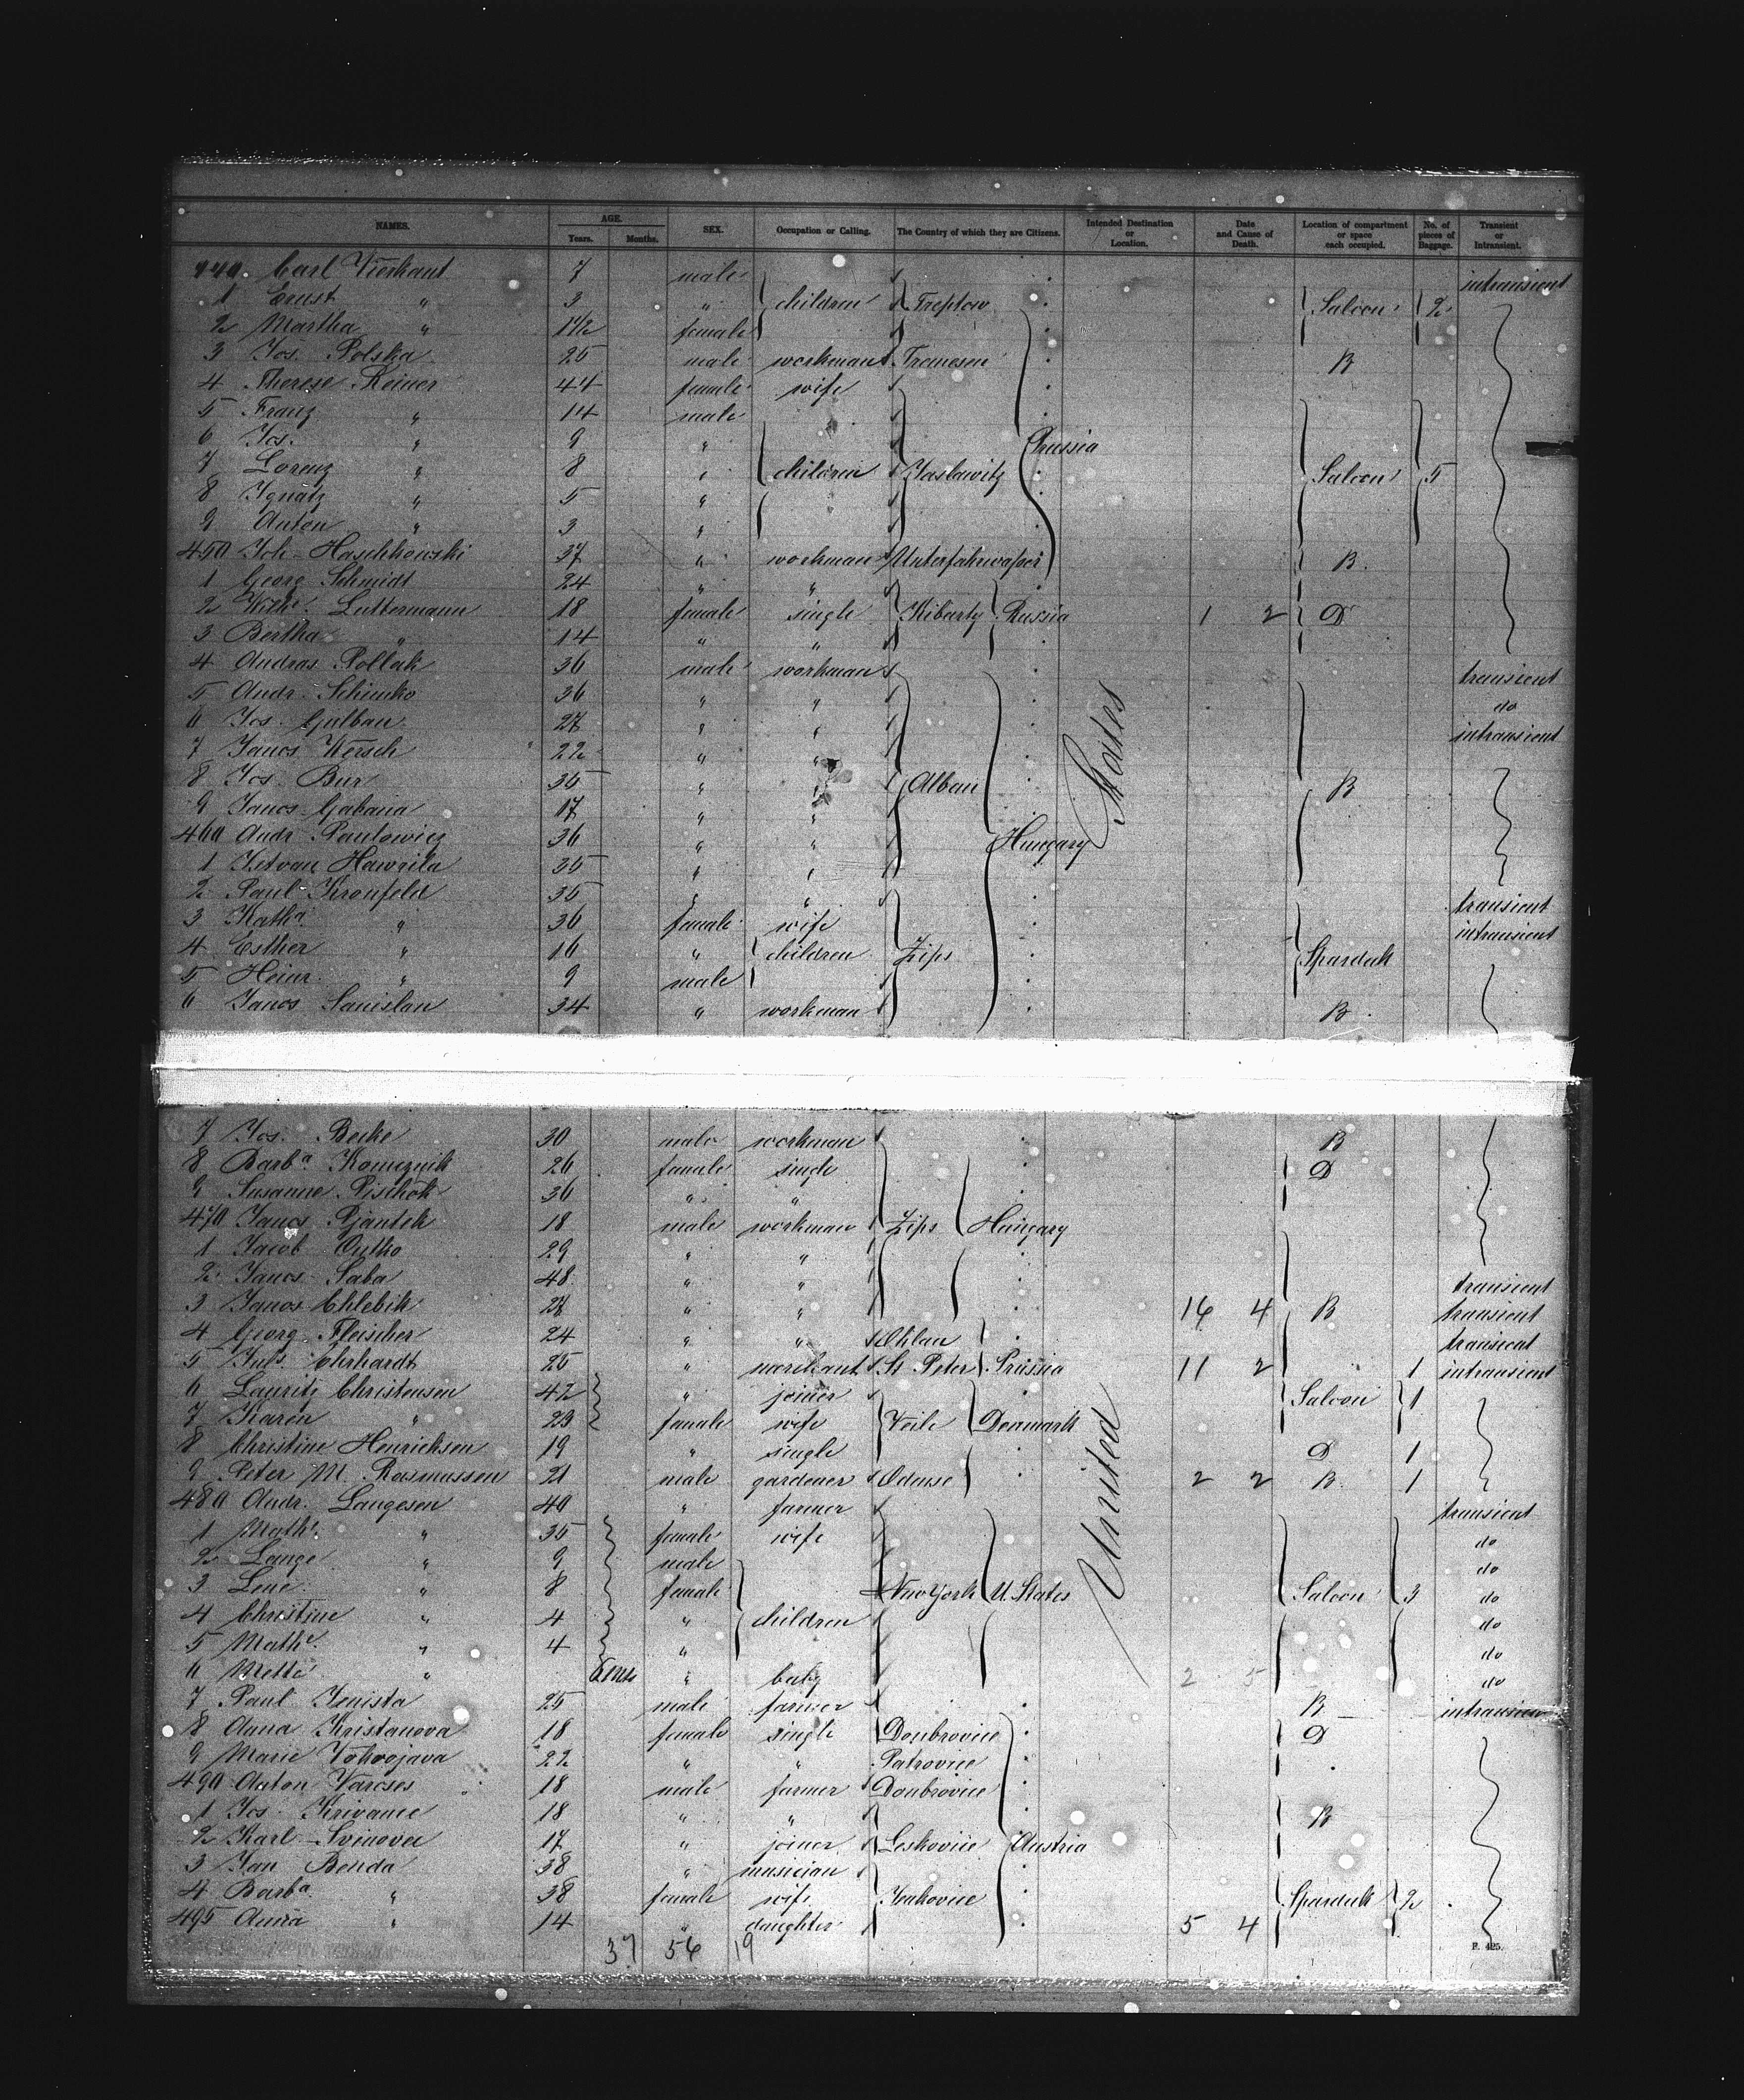 NAMES. AGE. Years. Months. SEX. Occupation or Calling. The Country of which they are Citizens. Intended Destination or Location. Date and Cause of Death. Location of compartment or space each occupied. No. of pieces of Baggage. Transient or Intransient.
440. Carl Vierkant 7 male intransient
1 Ernst " 3 " children Treptow Saloon 2
2 Martha " 1 1/2 female
3 Jos. Polska 25 male workman Tremesen B
4 Therese Reiner 44 female wife
5 Franz " 14 male
6 Jos. " 9 " Prussia
7 Lorenz " 8 " children Jaslawitz Saloon 5
8 Ignatz " 5 "
9 Anton " 3 "
450 Joh. Haschkowski 37 " workman Unterfahrwasser B.
1 Georg Schmidt 24 " "
2 Wilhe. Luttermann 18 female single Kibarty Russia 1 2 D
3 Bertha " 14 " "
4 Andras Pollak 36 male workman transient
5 Andr. Schimko 36 " " do
6 Jos. Gulban 27 " " intransient
7 Janos Kersch 22 " "
8 Jos. Bur 35 " " Alban B
9 Janos Gabana 17 " "
460 Andr. Paulowicz 36 " " Hungary
1 Istvan Hawrila 35 " "
2 Paul Kronfeld 35 " transient
3 Katha. " 36 female wife intransient
4 Esther " 16 " children Zips Spardeck
5 Heinr. " 9 male
6 Janos Sanislan 34 " workman B
States
7 Jos. Beike 30 male workman B
8 Barba. Komcznik 26 female single D
9 Susanne Pischok 36 " "
470 Janos Pjantek 18 male workman Zips Hungary
1 Jacob Ontko 29 " "
2 Janos Saba 48 " " transient
3 Janos Chlebik 28 " " 16 4 B transient
4 Georg Fleischer 24 " " Ohlau transient
5 Juls. Ehrhardt 25 " merchant St. Peter Prussia 11 2 1 intransient
6 Lauritz Christensen 42 " joiner Saloon 1
7 Karen " 23 female wife Veile Denmark
8 Christine Henricksen 19 " single D 1
9 Peter M. Rasmussen 21 male gardener Odense 2 2 B 1
480 Andr. Langesen 40 " farmer transient
1 Mathe. " 35 female wife do
2 Lange " 9 male do
3 Lene " 8 female New York U. States Saloon 3 do
4 Christine " 4 " children do
5 Mathe. " 4 " do
6 Mette " 6 mos " baby 2 5 do
7 Paul Jenista 25 male farmer B intransient
8 Anna Kristanova 18 female single Doubrovice D
9 Marie 22 " " Patrovice
490 Anton Varcses 18 male farmer Doubrovice
1 Jos. Krivanec 18 " " B
2 Karl Svinovec 17 " joiner Leskovice Austria
3 Jan Benda 38 " musician
4 Barba. " 38 female wife Jrakovice Spardeck 2
495 Anna " 14 " daughter 5 4
United
37 56 19
F. 425.